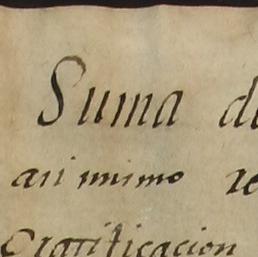 Suma de
asi mismo re
Gratificacion